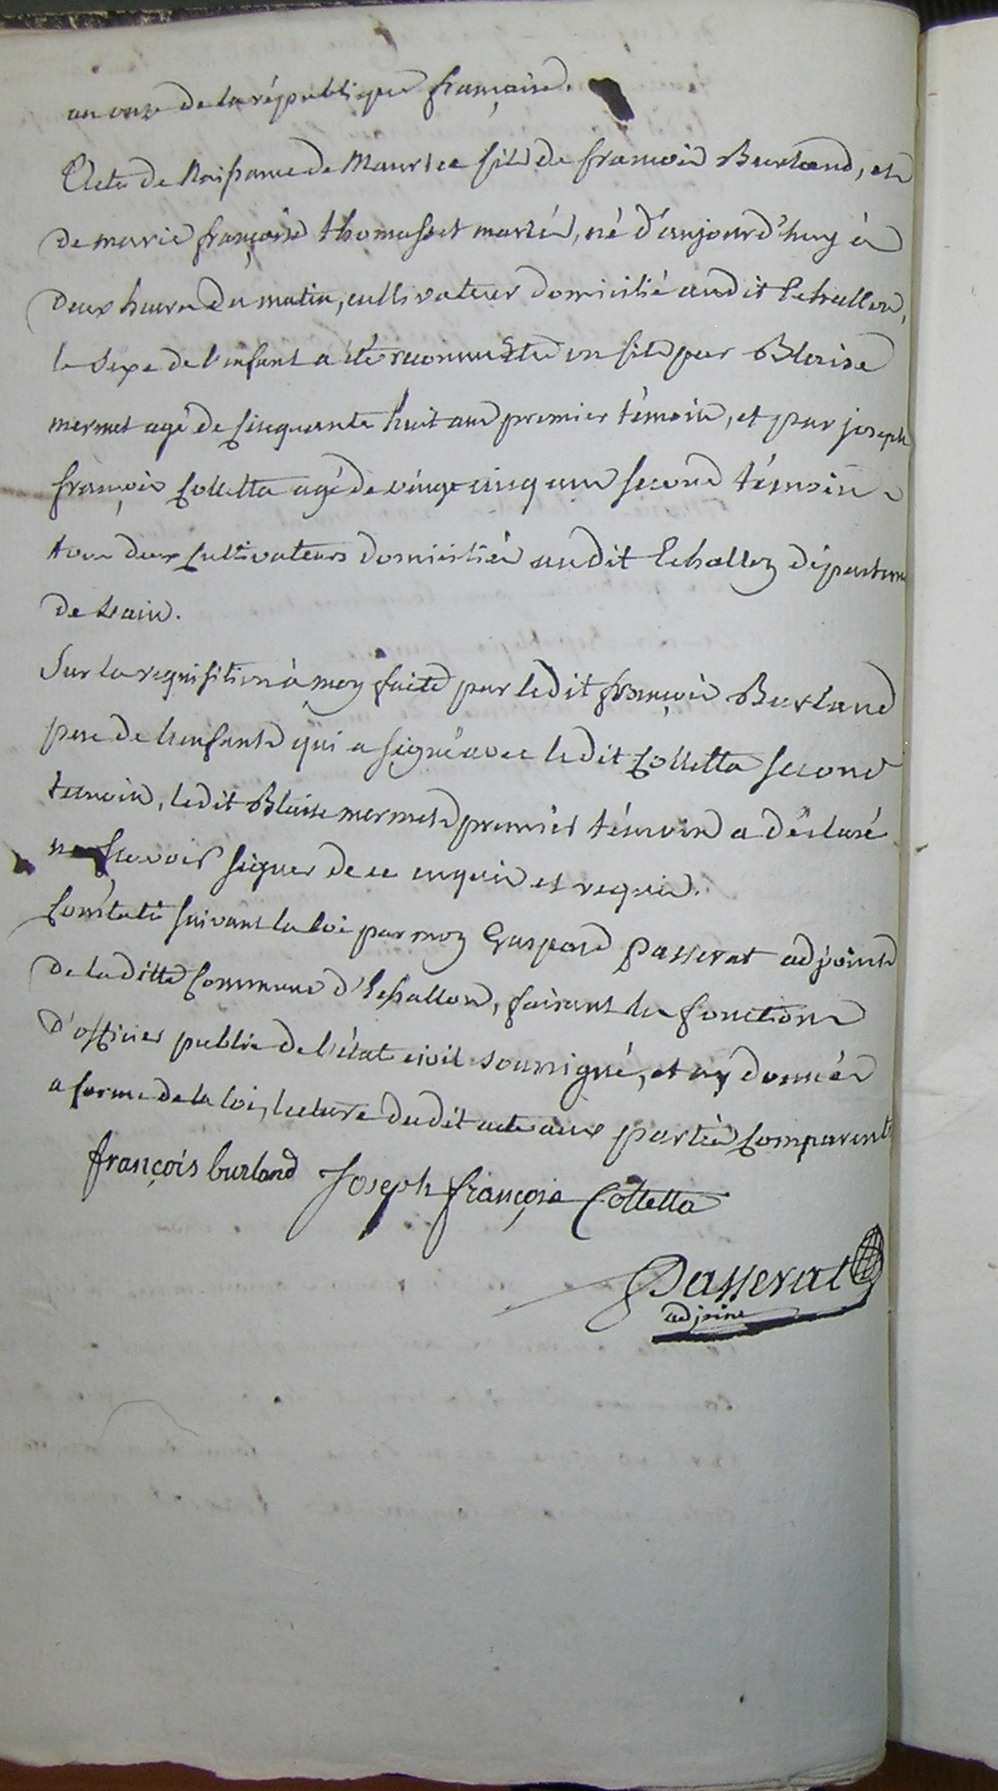 an onze de la république française.
Acte de Naissance de Maurice fils de françois Burland, et
de marie françoise thomasset mariés, né d'aujourd'huy à
deux heures du matin, cultivateur domicilié audit Echallon,
le sexe de l'enfant a été reconnu être un fils par Blaise
mermet agé de Cinquante huit ans premier témoin, et par joseph
françois Colletta agé de vingt cinq ans second témoin
tous deux Cultivateurs domiciliés audit Echallon départem
de Lain.
Sur la requisition à moy faite par ledit françois Burland
pere de lenfant qui a signé avec ledit Colletta second
temoin, ledit Blaise mermet premier témoin a déclaré
ne scavoir signer de ce enquis et requis.
Constaté suivant la loi par moy Gaspard passerat adjoint
de la ditte Commune d'Echallon, faisant les fonctions
d'officier public de l'état civil soussigné, et ay donnés
a forme de la loi, lecture dudit acte aux parties Comparents
françois burland Joseph françois Colletta
Passerat
adjoint